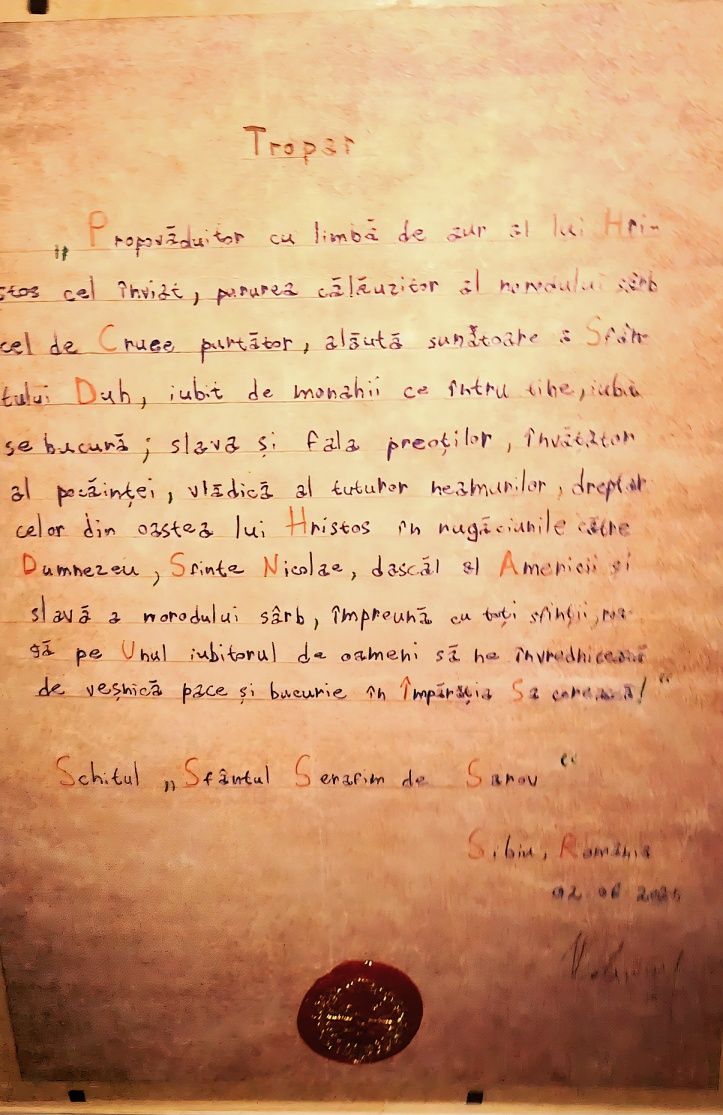 Tropar
„Propovăduitor cu limbă de aur al lui Hri-
stos cel înviat, pururea călăuzitor al norodului sârb
cel de Cruce purtător, alăută sunătoare a Sfân-
tului Duh, iubit de monahii ce întru tine, iubit
se bucură; slava și fala preoților, învățător
al pocăinței, vlădică al tuturor neamurilor, dreptar
celor din oastea lui Hristos în rugăciunile către
Dumnezeu, Sfinte Nicolae, dascăl al Americii și
slavă a norodului sârb, împreună cu toți sfinții, roa-
gă pe Unul iubitorul de oameni să ne învrednicească
de veșnică pace și bucurie în Împărăția Sa cerească!"
Schitul „Sfântul Serafim de Sarov"
Sibiu, România
02 06 2025